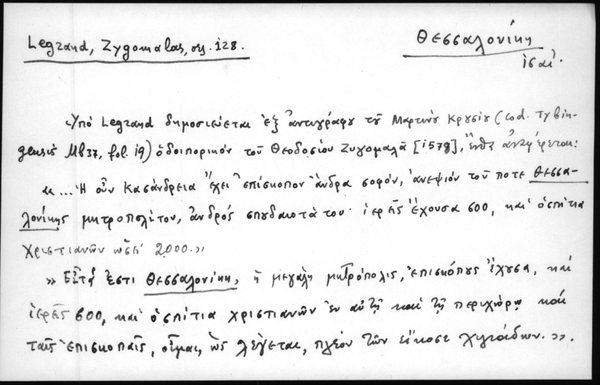 Legrand, Zygomalas, σσ. 128.
Θεσσαλονίκη
ις αἰ.
Ὑπὸ Legrand δημοσιεύεται ἐξ ἀντιγράφου τοῦ Μαρτίνου Κρυσίου (cod. Tybin-
gensis Mb 37, fol. 19) ὁδοιπορικὸν τοῦ Θεοδοσίου Ζυγομαλᾶ [1578], ἔνθα ἀναφέρεται:
«... Ἡ οὖν Κασάνδρεια ἔχει ἐπίσκοπον ἄνδρα σοφόν, ἀνεψιὸν τοῦ ποτε Θεσσα-
λονίκης μητροπολίτου, ἀνδρὸς σπουδαιοτάτου· ἱερεῖς ἔχουσα 600, καὶ ὁσπίτια
Χριστιανῶν ὡσεὶ 2.000.»
» Εἶτα ἔστι Θεσσαλονίκη, ἡ μεγάλη μητρόπολις, ἐπισκόπους ἔχουσα, καὶ
ἱερεῖς 600, καὶ ὁσπίτια χριστιανῶν ἐν αὐτῇ καὶ τῇ περιχώρῳ καὶ
ταῖς ἐπισκοπαῖς, οἶμαι, ὡς λέγεται, πλέον τῶν εἴκοσι χιλιάδων.».